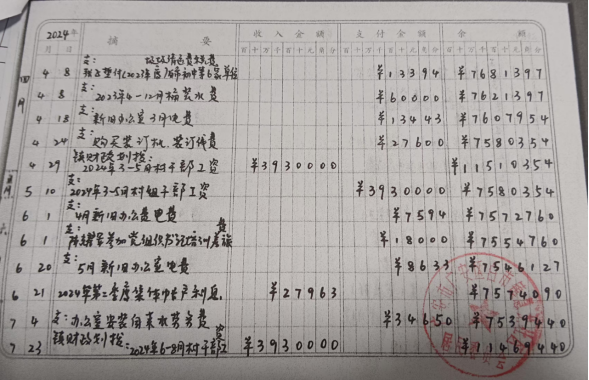 2024年
月 日 摘 要 收入金额 支付金额 余额
百十万千百十元角分 百十万千百十元角分 百十万千百十元角分
4 8 支: ¥13394 ¥7681397
4 8 支: 2023年4-12月桶装水费 ¥60000 ¥7621397
4 18 支: 新旧办公室3月电费 ¥13443 ¥7607954
4 24 支: 购买装订机、装订线费 ¥27600 ¥7580354
4 29 镇财政划拨: 2024年3-5月村干部工资 ¥3930000 ¥11510354
5 10 支: 2024年3-5月村组干部工资 ¥3930000 ¥7580354
6 1 支: 4月新旧办公室电费 ¥7594 ¥7572760
6 1 支: 参加党组织书记培训差旅费 ¥18000 ¥7554760
6 20 支: 5月新旧办公室电费 ¥8633 ¥7546127
6 21 2024年第二季度集体资产利息 ¥27963 ¥7574090
7 4 支: 办公室安装自来水劳务费 ¥34650 ¥7539440
7 23 镇财政划拨: 2024年6-8月村干部工资 ¥3930000 ¥11469440